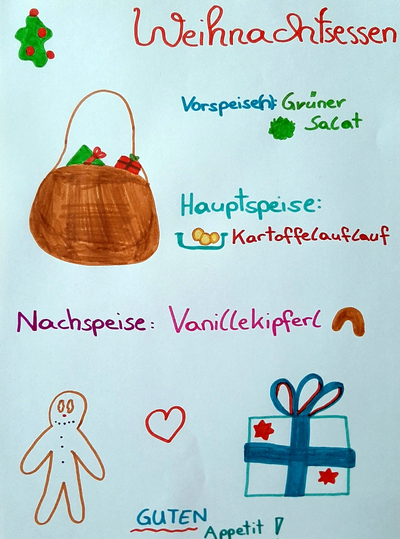 Weihnachtsessen
Vorspeise(n): Grüner
Salat
Hauptspeise:
Kartoffelauflauf
Nachspeise: Vanillekipferl
GUTEN
Appetit!